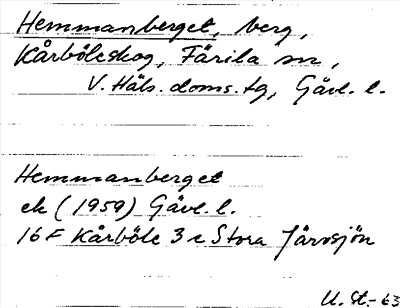 Hemmanberget, berg,
Kårböleskog, Färila sn,
V. Häls. doms. tg, Gävl. l.
Hemmanberget
ek (1959) Gävl. l.
16 F Kårböle 3 c Stora Järvsjön
U. St. - 63